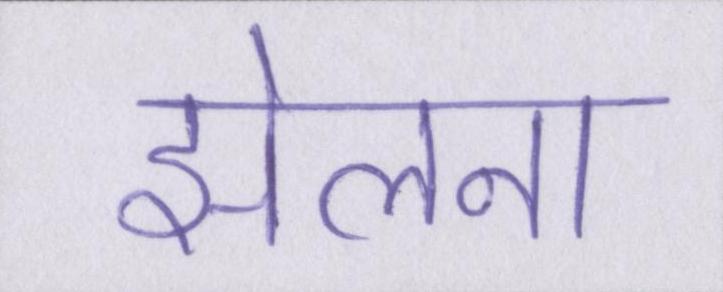 झेलना